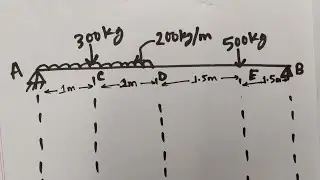 300kg 200kg/m 500kg
A C D E B
1m 1m 1.5m 1.5m